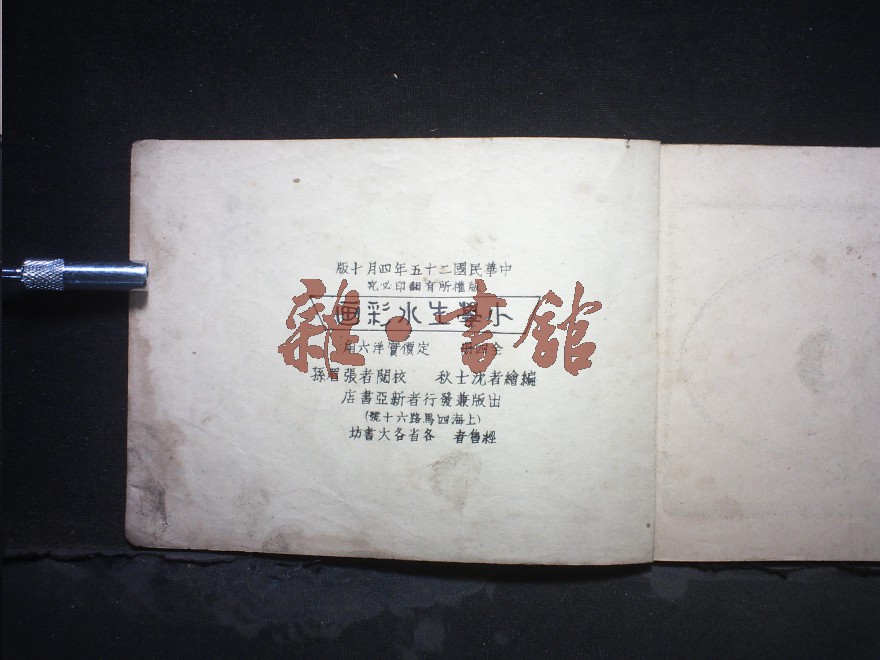 中華民國二十五年四月十版
版權所有翻印必究
小學生水彩画
全四冊 定價實洋六角
編繪者沈士秋 校閱者張眉孫
出版兼發行者新亞書店
(上海四馬路六十號)
經售者 各省各大書坊
雜·書館